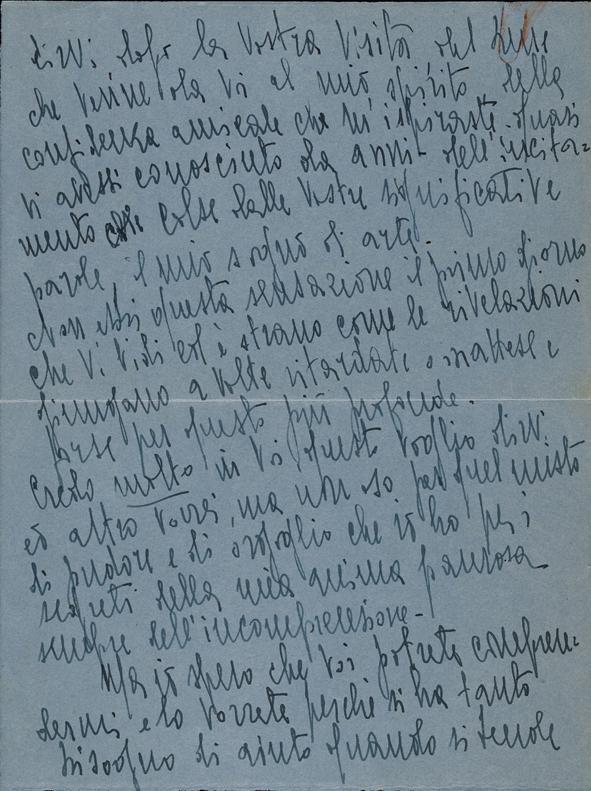 dirVi dopo la Vostra Visita, del bene
che venne da Vi al mio spirito, della
confidenza amicale che m'ispiraste quasi
vi avessi conosciuto da anni - dell'incita=
mento che colse dalle vostre significative
parole, il mio sogno di arte.
Non ebbi questa sensazione il primo giorno
che Vi vidi ed è strano come le rivelazioni
giungano a volte ritardate o inattese e
forse per questo più profonde.
Credo molto in Voi questo voglio dirVi
ed altro vorrei, ma non so, per quel misto
di pudore e di orgoglio che io ho per i
segreti della mia anima paurosa
sempre dell'incomprensione -
Ma io spero che Voi potrete compren=
dermi e lo vorrete perché si ha tanto
bisogno di aiuto quando si tende